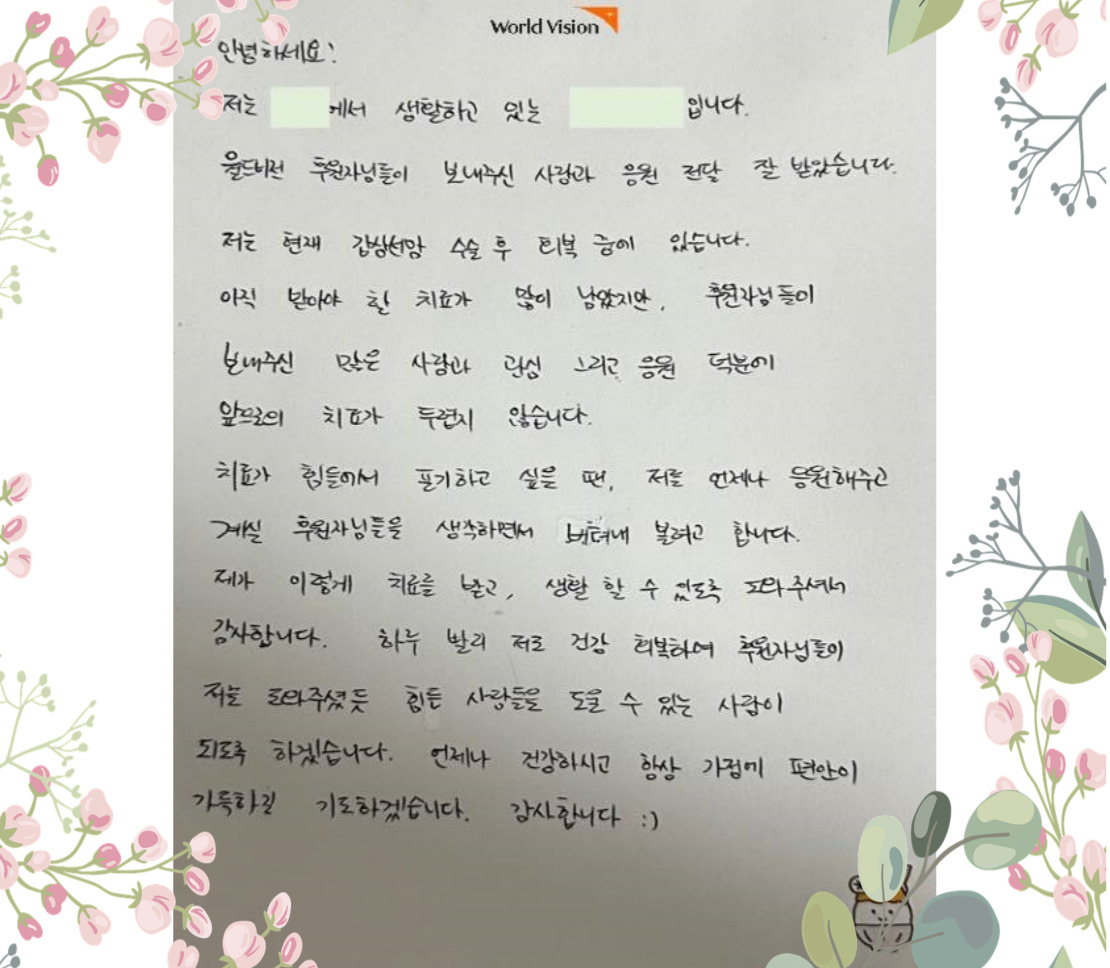 World Vision
안녕하세요!
저는 에서 생활하고 있는 입니다.
월드비전 후원자님들이 보내주신 사랑과 응원 전달 잘 받았습니다.
저는 현재 갑상선암 수술 후 회복 중에 있습니다.
아직 받아야 할 치료가 많이 남았지만, 후원자님들이
보내주신 많은 사랑과 관심 그리고 응원 덕분에
앞으로의 치료가 두렵지 않습니다.
치료가 힘들어서 포기하고 싶을 땐, 저를 언제나 응원해주고
계실 후원자님들을 생각하면서 버텨내 볼려고 합니다.
제가 이렇게 치료를 받고, 생활 할 수 있도록 도와주셔서
감사합니다. 하루 빨리 저도 건강 회복하여 후원자님들이
저를 도와주셨듯 힘든 사람들을 도울 수 있는 사람이
되도록 하겠습니다. 언제나 건강하시고 항상 가정에 편안이
가득하길 기도하겠습니다. 감사합니다 :)